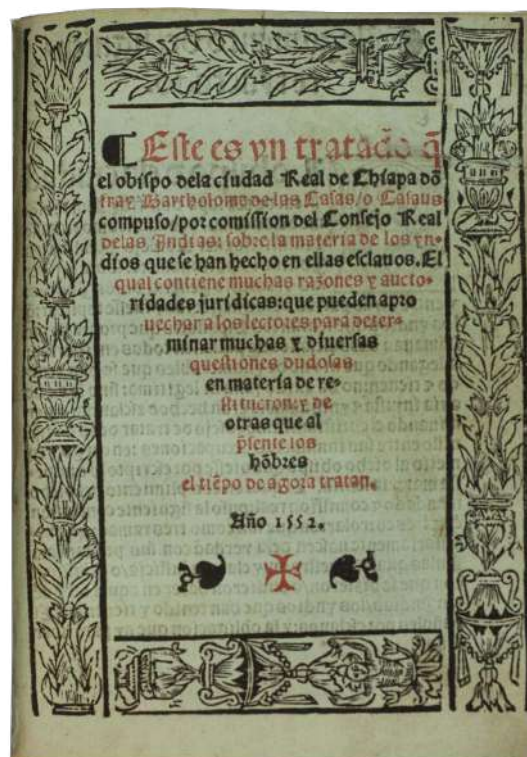 ¶ Este es vn tratado q̃
el obispo dela ciudad Real de Chiapa dõ
fray Bartholome de las Casas/o Casaus
compuso/por comission del Consejo Real
delas Indias: sobre la materia de los yn-
dios que se han hecho en ellas esclauos. El
qual contiene muchas razones y aucto-
ridades juridicas: que pueden apro
uechar a los lectores para deter-
minar muchas y diuersas
questiones dudosas
en materia de re-
stitucion: y de
otras que al
p̃sente los
hõbres
el tiẽpo de agora tratan.
Año 1552.